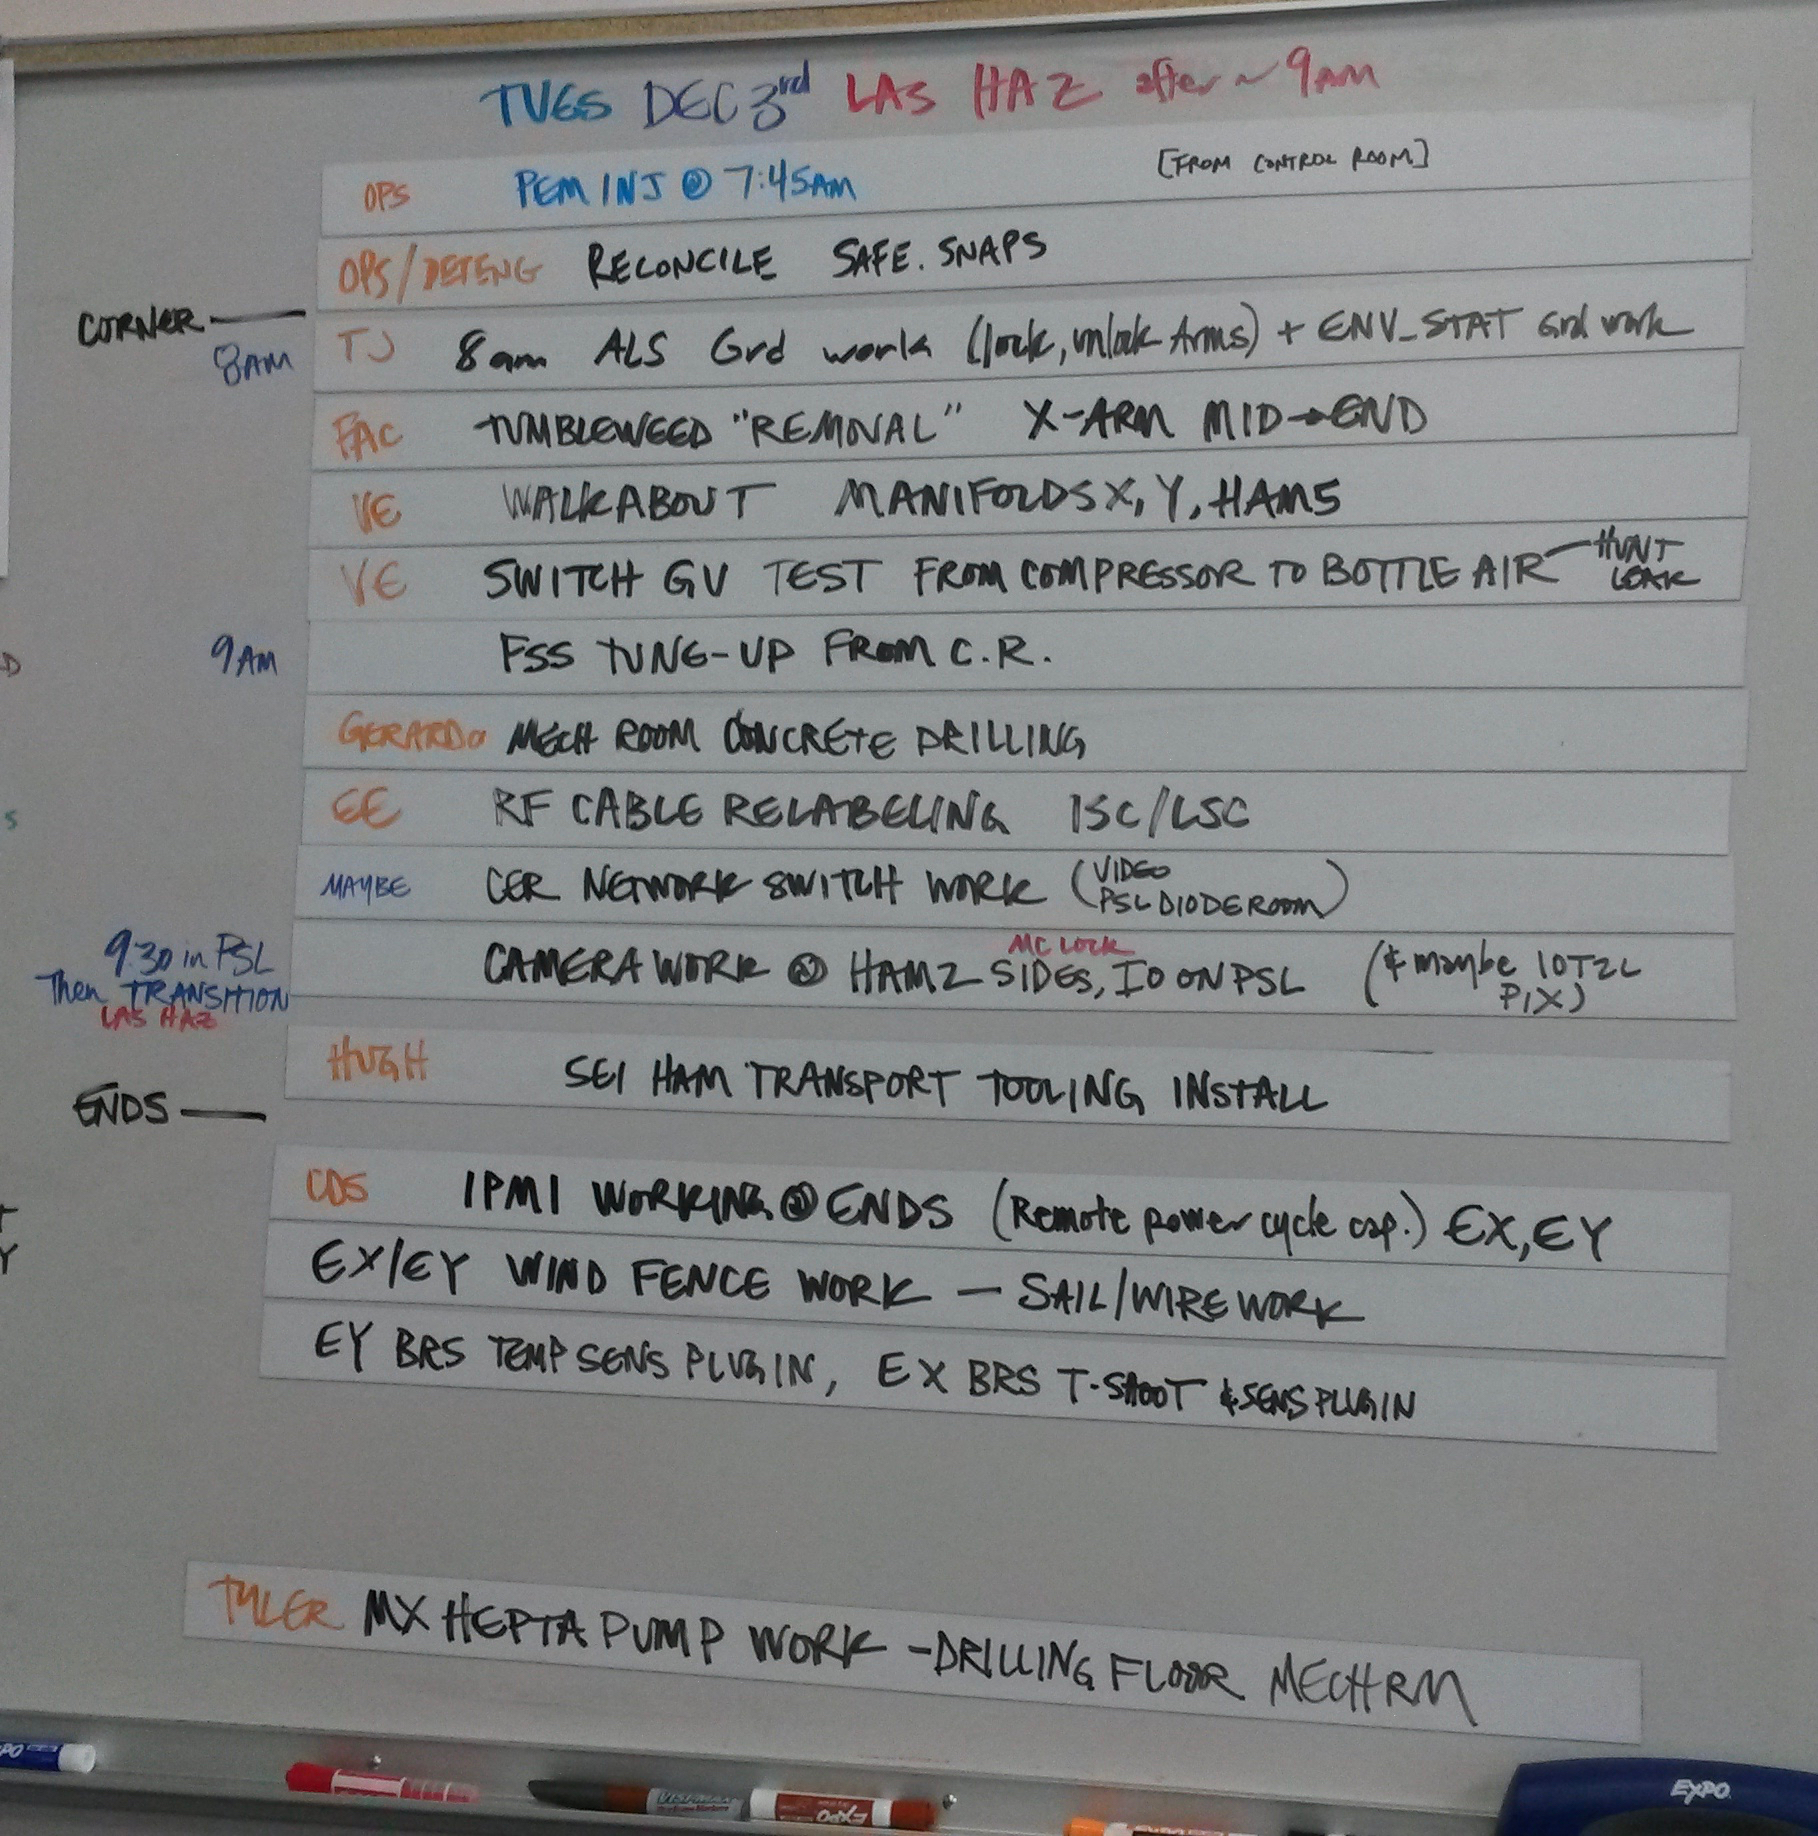 TUES DEC 3rd LAS HAZ after ~ 9AM
OPS PEM INJ @ 7:45AM [FROM CONTROL ROOM]
OPS/DETENG RECONCILE SAFE.SNAPS
CORNER —
8AM
TJ 8am ALS Grd work (lock, unlock Arms) + ENV_STAT Grd work
FAC TUMBLEWEED "REMOVAL" X-ARM MID→END
VE WALKABOUT MANIFOLDS X, Y, HAM5
VE SWITCH GV TEST FROM COMPRESSOR TO BOTTLE AIR — HUNT
LEAK
9AM FSS TUNE-UP FROM C.R.
GERARDO MECH ROOM CONCRETE DRILLING
EE RF CABLE RELABELING ISC/LSC
MAYBE CER NETWORK SWITCH WORK (VIDEO
PSL DIODE ROOM)
9:30 in PSL
Then TRANSITION
LAS HAZ
MC LOCK
CAMERA WORK @ HAM2 SIDES, IO ON PSL (& maybe IOT2L
PIX)
HUGH SEI HAM TRANSPORT TOOLING INSTALL
ENDS —
CDS IPMI WORKING @ ENDS (Remote power cycle cap.) EX, EY
EX/EY WIND FENCE WORK — SAIL/WIRE WORK
EY BRS TEMP SENS PLUGIN, EX BRS T-SHOOT & SENS PLUGIN
TYLER MX HEPTA PUMP WORK - DRILLING FLOOR MECH RM
EXPO
EXPO